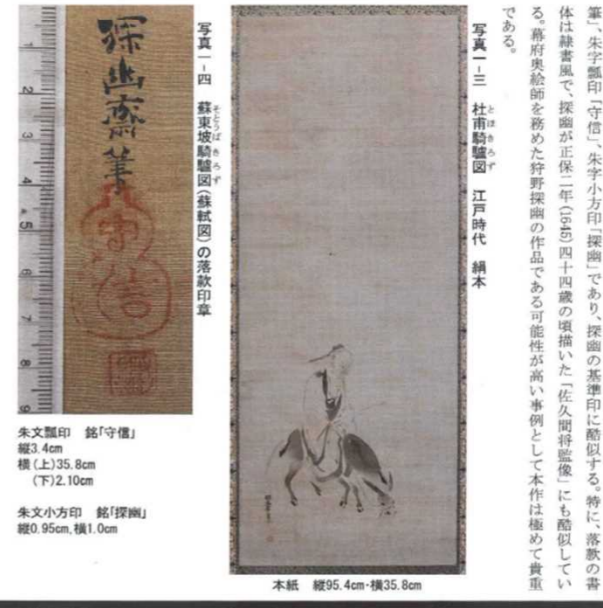 筆」、朱字瓢印「守信」、朱字小方印「探幽」であり、探幽の基準印に酷似する。特に、落款の書
体は隷書風で、探幽が正保二年(1645)四十四歳の頃描いた「佐久間将監像」にも酷似してい
る。幕府奥絵師を務めた狩野探幽の作品である可能性が高い事例として本作は極めて貴重
である。
写真一-三 杜甫騎驢図 江戸時代 絹本
とほきろず
本紙 縦95.4cm・横35.8cm
写真一-四 蘇東坡騎驢図(蘇軾図)の落款印章
そとうばきろず
探幽齋筆
守信
1 2 3 4 5 6 7 8 9
朱文瓢印 銘「守信」
縦3.4cm
横(上)35.8cm
(下)2.10cm
朱文小方印 銘「探幽」
縦0.95cm,横1.0cm